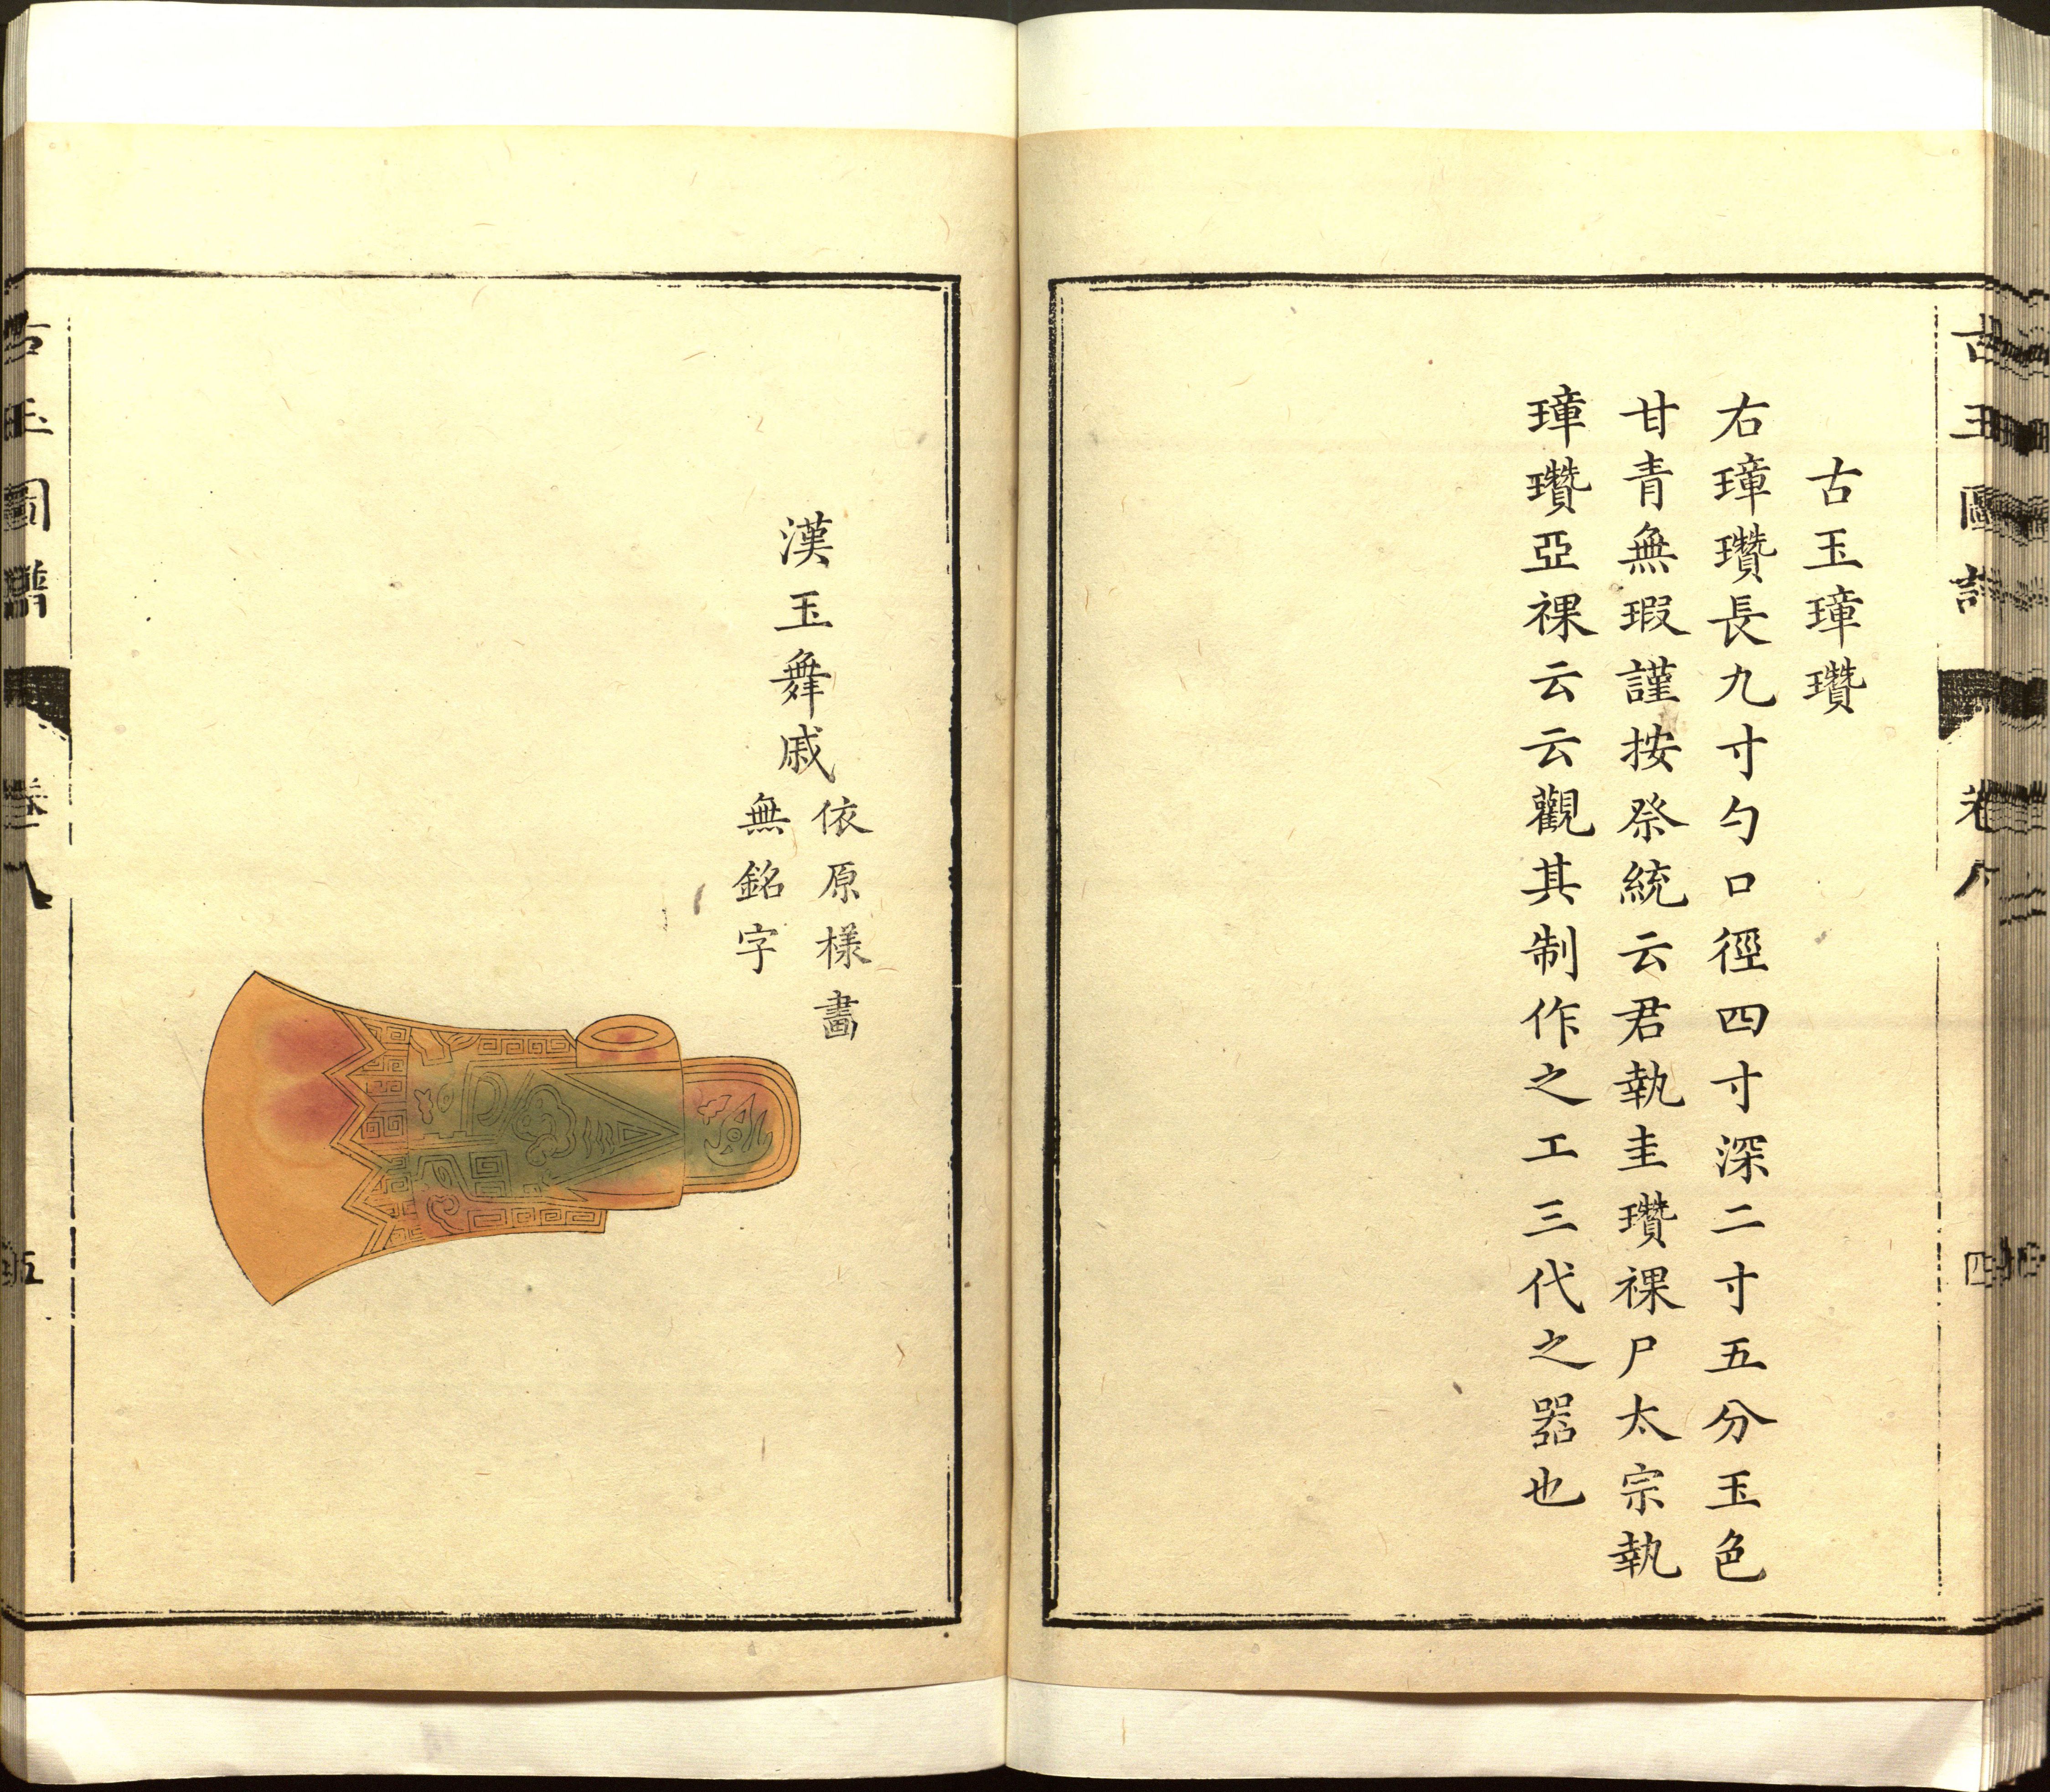 古玉圖譜 卷八 四
古玉璋瓚
右璋瓚長九寸勺口徑四寸深二寸五分玉色
甘青無瑕謹按祭統云君執圭瓚祼尸太宗執
璋瓚亞祼云云觀其制作之工三代之器也
漢玉舞戚
依原樣畫
無銘字
古玉圖譜 卷八 五